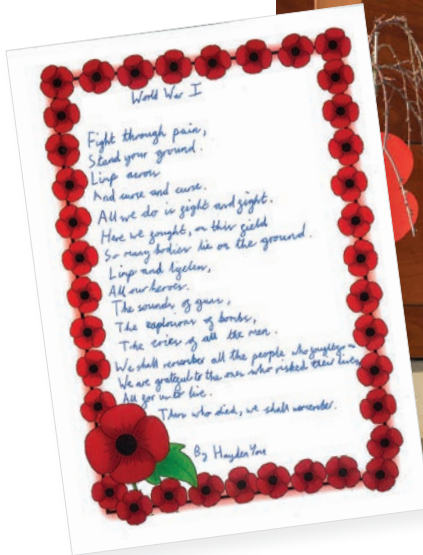 World War I
Fight through pain,
Stand your ground.
Limp across
And curse and curse.
All we do is fight and fight.
Here we fought, on this field
So many bodies lie on the ground.
Limp and lifeless,
All our heroes.
The sounds of guns,
The explosions of bombs,
The cries of all the men.
We shall remember all the people who fought
We are grateful to the ones who risked their lives
All for us to live.
Those who died, we shall remember.
By Hayden